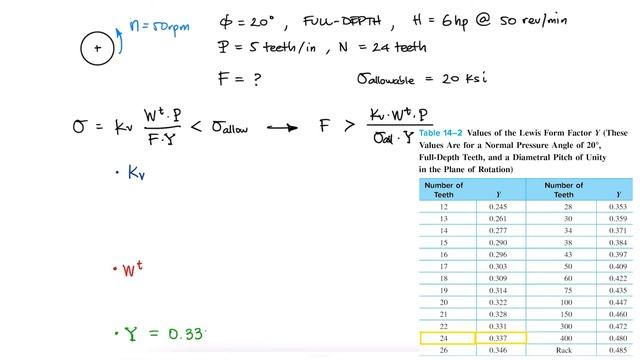 n = 50rpm
+
ϕ = 20° , FULL-DEPTH , H = 6hp @ 50 rev/min
P = 5 teeth/in , N = 24 teeth
F = ?    σallowable = 20 ksi
σ = Kv (W^t · P)/(F · Y) < σallow → F > (Kv · W^t · P)/(σall · Y)
• Kv
• W^t
• Y = 0.33
Table 14–2 Values of the Lewis Form Factor Y (These
Values Are for a Normal Pressure Angle of 20°,
Full-Depth Teeth, and a Diametral Pitch of Unity
in the Plane of Rotation)
Number of Teeth Y Number of Teeth Y
12 0.245 28 0.353
13 0.261 30 0.359
14 0.277 34 0.371
15 0.290 38 0.384
16 0.296 43 0.397
17 0.303 50 0.409
18 0.309 60 0.422
19 0.314 75 0.435
20 0.322 100 0.447
21 0.328 150 0.460
22 0.331 300 0.472
24 0.337 400 0.480
26 0.346 Rack 0.485